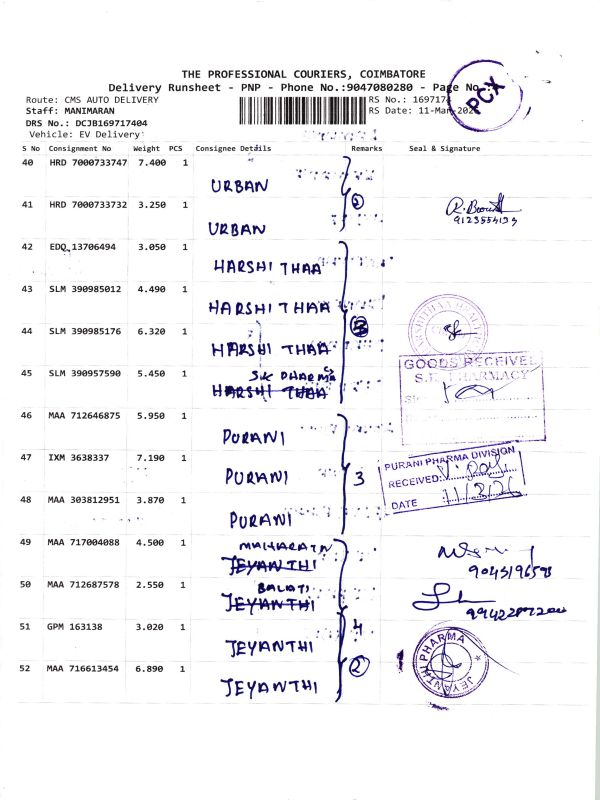 THE PROFESSIONAL COURIERS, COIMBATORE
Delivery Runsheet - PNP - Phone No.:9047080280 - Page No.:
PCX
Route: CMS AUTO DELIVERY
RS No.: 169717
Staff: MANIMARAN
RS Date: 11-Mar-
DRS No.: DCJB169717404
Vehicle: EV Delivery
S No Consignment No Weight PCS Consignee Details Remarks Seal & Signature
40 HRD 7000733747 7.400 1 URBAN
2
41 HRD 7000733732 3.250 1 URBAN
R.
42 EDQ 13706494 3.050 1 HARSHI THAA
43 SLM 390985012 4.490 1 HARSHI THAA
44 SLM 390985176 6.320 1 HARSHI THAA
3
GOODS RECEIVED
S.K. PHARMACY
45 SLM 390957590 5.450 1 SK PHARMACY
HARSHI THAA
46 MAA 712646875 5.950 1 PURANI
47 IXM 3638337 7.190 1 PURANI
3
PURANI PHARMA DIVISION
RECEIVED:
DATE 11/3/26
48 MAA 303812951 3.870 1 PURANI
49 MAA 717004088 4.500 1
JEYANTHI
50 MAA 712687578 2.550 1 BALAJI
JEYANTHI
51 GPM 163138 3.020 1 JEYANTHI
4
52 MAA 716613454 6.890 1 JEYANTHI
2
JEYANTHI PHARMA